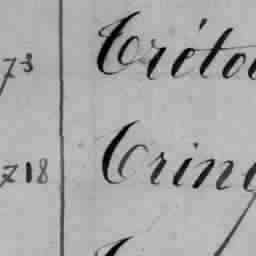 73 Créto
718 Cring